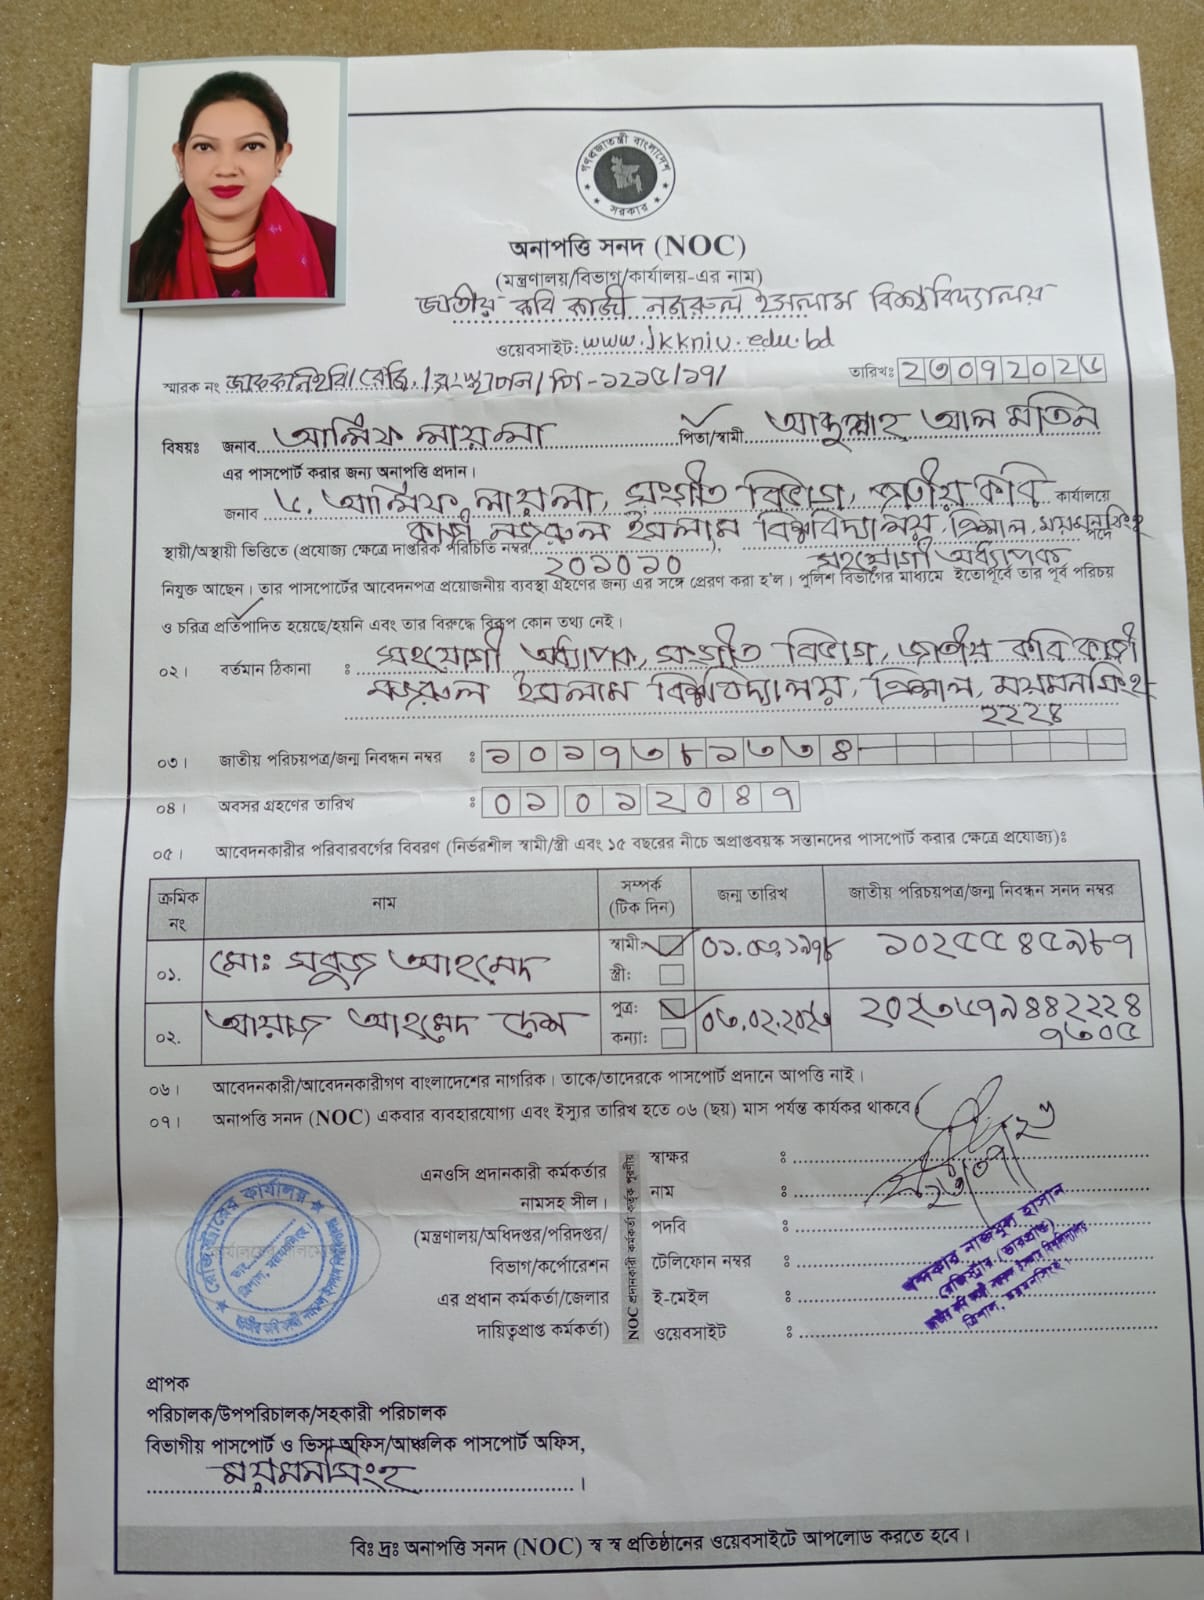 গণপ্রজাতন্ত্রী বাংলাদেশ
সরকার
অনাপত্তি সনদ (NOC)
(মন্ত্রণালয়/বিভাগ/কার্যালয়-এর নাম)
জাতীয় কবি কাজী নজরুল ইসলাম বিশ্ববিদ্যালয়
ওয়েবসাইট: www.jkkniu.edu.bd
স্মারক নং জাককানইবি/রেজি./সংস্থাপন/পি-১২১৫/১৭/ তারিখঃ ২৩০৭২০২৫
বিষয়ঃ জনাব আলিফ লায়লা পিতা/স্বামী আব্দুল্লাহ্ আল মতিন
এর পাসপোর্ট করার জন্য অনাপত্তি প্রদান।
জনাব ড. আলিফ লায়লা, সংগীত বিভাগ, জাতীয় কবি কার্যালয়ে
কাজী নজরুল ইসলাম বিশ্ববিদ্যালয়, ত্রিশাল, ময়মনসিংহ পদে
স্থায়ী/অস্থায়ী ভিত্তিতে (প্রযোজ্য ক্ষেত্রে দাপ্তরিক পরিচিতি নম্বর ২০১০১০ ) সহযোগী অধ্যাপক
নিযুক্ত আছেন। তার পাসপোর্টের আবেদনপত্র প্রয়োজনীয় ব্যবস্থা গ্রহণের জন্য এর সঙ্গে প্রেরণ করা হ'ল। পুলিশ বিভাগের মাধ্যমে ইতোপূর্বে তার পূর্ব পরিচয়
ও চরিত্র প্রতিপাদিত হয়েছে/হয়নি এবং তার বিরুদ্ধে বিরূপ কোন তথ্য নেই।
০২। বর্তমান ঠিকানা : সহযোগী অধ্যাপক, সংগীত বিভাগ, জাতীয় কবি কাজী
নজরুল ইসলাম বিশ্ববিদ্যালয়, ত্রিশাল, ময়মনসিংহ
২২২৪
০৩। জাতীয় পরিচয়পত্র/জন্ম নিবন্ধন নম্বর : ১০১৭৩৮১৩৩৪
০৪। অবসর গ্রহণের তারিখ : ০১০১২০৪৭
০৫। আবেদনকারীর পরিবারবর্গের বিবরণ (নির্ভরশীল স্বামী/স্ত্রী এবং ১৫ বছরের নীচে অপ্রাপ্তবয়স্ক সন্তানদের পাসপোর্ট করার ক্ষেত্রে প্রযোজ্য)ঃ
ক্রমিক নং নাম সম্পর্ক (টিক দিন) জন্ম তারিখ জাতীয় পরিচয়পত্র/জন্ম নিবন্ধন সনদ নম্বর
০১. মোঃ সবুজ আহমেদ স্বামী: ০১.০৩.১৯৭৮ ১০২৫৫৪৫৯৮৭
স্ত্রী:
০২. আয়াজ আহমেদ পুত্র: ০৩.০২.২০২৩ ২০২৩৬৭৯৪৪২২২৪
কন্যা: ৭৩০৫
০৬। আবেদনকারী/আবেদনকারীগণ বাংলাদেশের নাগরিক। তাকে/তাদেরকে পাসপোর্ট প্রদানে আপত্তি নাই।
০৭। অনাপত্তি সনদ (NOC) একবার ব্যবহারযোগ্য এবং ইস্যুর তারিখ হতে ০৬ (ছয়) মাস পর্যন্ত কার্যকর থাকবে।
এনওসি প্রদানকারী কর্মকর্তার
নামসহ সীল।
(মন্ত্রণালয়/অধিদপ্তর/পরিদপ্তর/
বিভাগ/কর্পোরেশন
এর প্রধান কর্মকর্তা/জেলার
দায়িত্বপ্রাপ্ত কর্মকর্তা)
NOC প্রদানকারী কর্মকর্তা কর্তৃক পূরণীয়
স্বাক্ষর :
নাম :
পদবি :
টেলিফোন নম্বর :
ই-মেইল :
ওয়েবসাইট :
খন্দকার নাজমুল হাসান
রেজিস্ট্রার (ভারপ্রাপ্ত)
জাতীয় কবি কাজী নজরুল ইসলাম বিশ্ববিদ্যালয়
ত্রিশাল, ময়মনসিংহ।
রেজিস্ট্রারের কার্যালয়
জাতীয় কবি কাজী নজরুল ইসলাম বিশ্ববিদ্যালয়
ত্রিশাল, ময়মনসিংহ।
প্রাপক
পরিচালক/উপপরিচালক/সহকারী পরিচালক
বিভাগীয় পাসপোর্ট ও ভিসা অফিস/আঞ্চলিক পাসপোর্ট অফিস,
ময়মনসিংহ ।
বিঃ দ্রঃ অনাপত্তি সনদ (NOC) স্ব স্ব প্রতিষ্ঠানের ওয়েবসাইটে আপলোড করতে হবে।